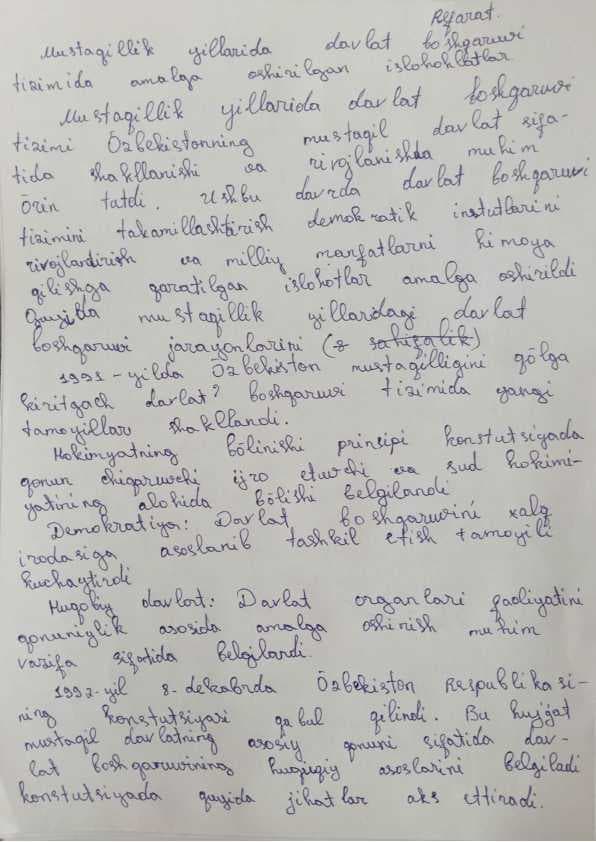 Referat.
Mustaqillik yillarida davlat boshqaruvi
tizimida amalga oshirilgan islohohlatlar
Mustaqillik yillarida davlat boshqaruvi
tizimi Özbekistonning mustaqil davlat sifa-
tida shakllanishi va rivojlanishda muhim
örin tutdi. Ushbu davrda davlat boshqaruvi
tizimini takamillashtirish demokratik institutlarini
rivojlantirish va milliy manfatlarni himoya
qilishga qaratilgan islohotlar amalga oshirildi
Quyida mustaqillik yillardagi davlat
boshqaruvi jarayonlarini (8 sahifalik)
1991-yilda Özbekiston mustaqilligini qölga
kiritgach davlat? boshqaruvi tizimida yangi
tamoyillar shakllandi.
Hokimyatning bölinishi prinsipi konstutsiyada
qonun chiqaruvchi ijro etuvchi va sud hokimi-
yatining alohida bölishi belgilandi
Demokratiya: Davlat boshqaruvini xalq
irodasiga asoslanib tashkil etish tamoyili
kuchaytirdi
Huqobiy davlat: Davlat organlari faoliyatini
qonuniylik asosida amalga oshirish muhim
vazifa sifatida belgilandi.
1992-yil 8-dekabrda Özbekiston Respublikasi-
ning konstutsiyasi qabul qilindi. Bu hujjat
mustaqil davlatning asosiy qonuni sifatida dav-
lat boshqaruvining huquqiy asoslarini belgiladi
konstutsiyada quyida jihatlar aks ettiradi.